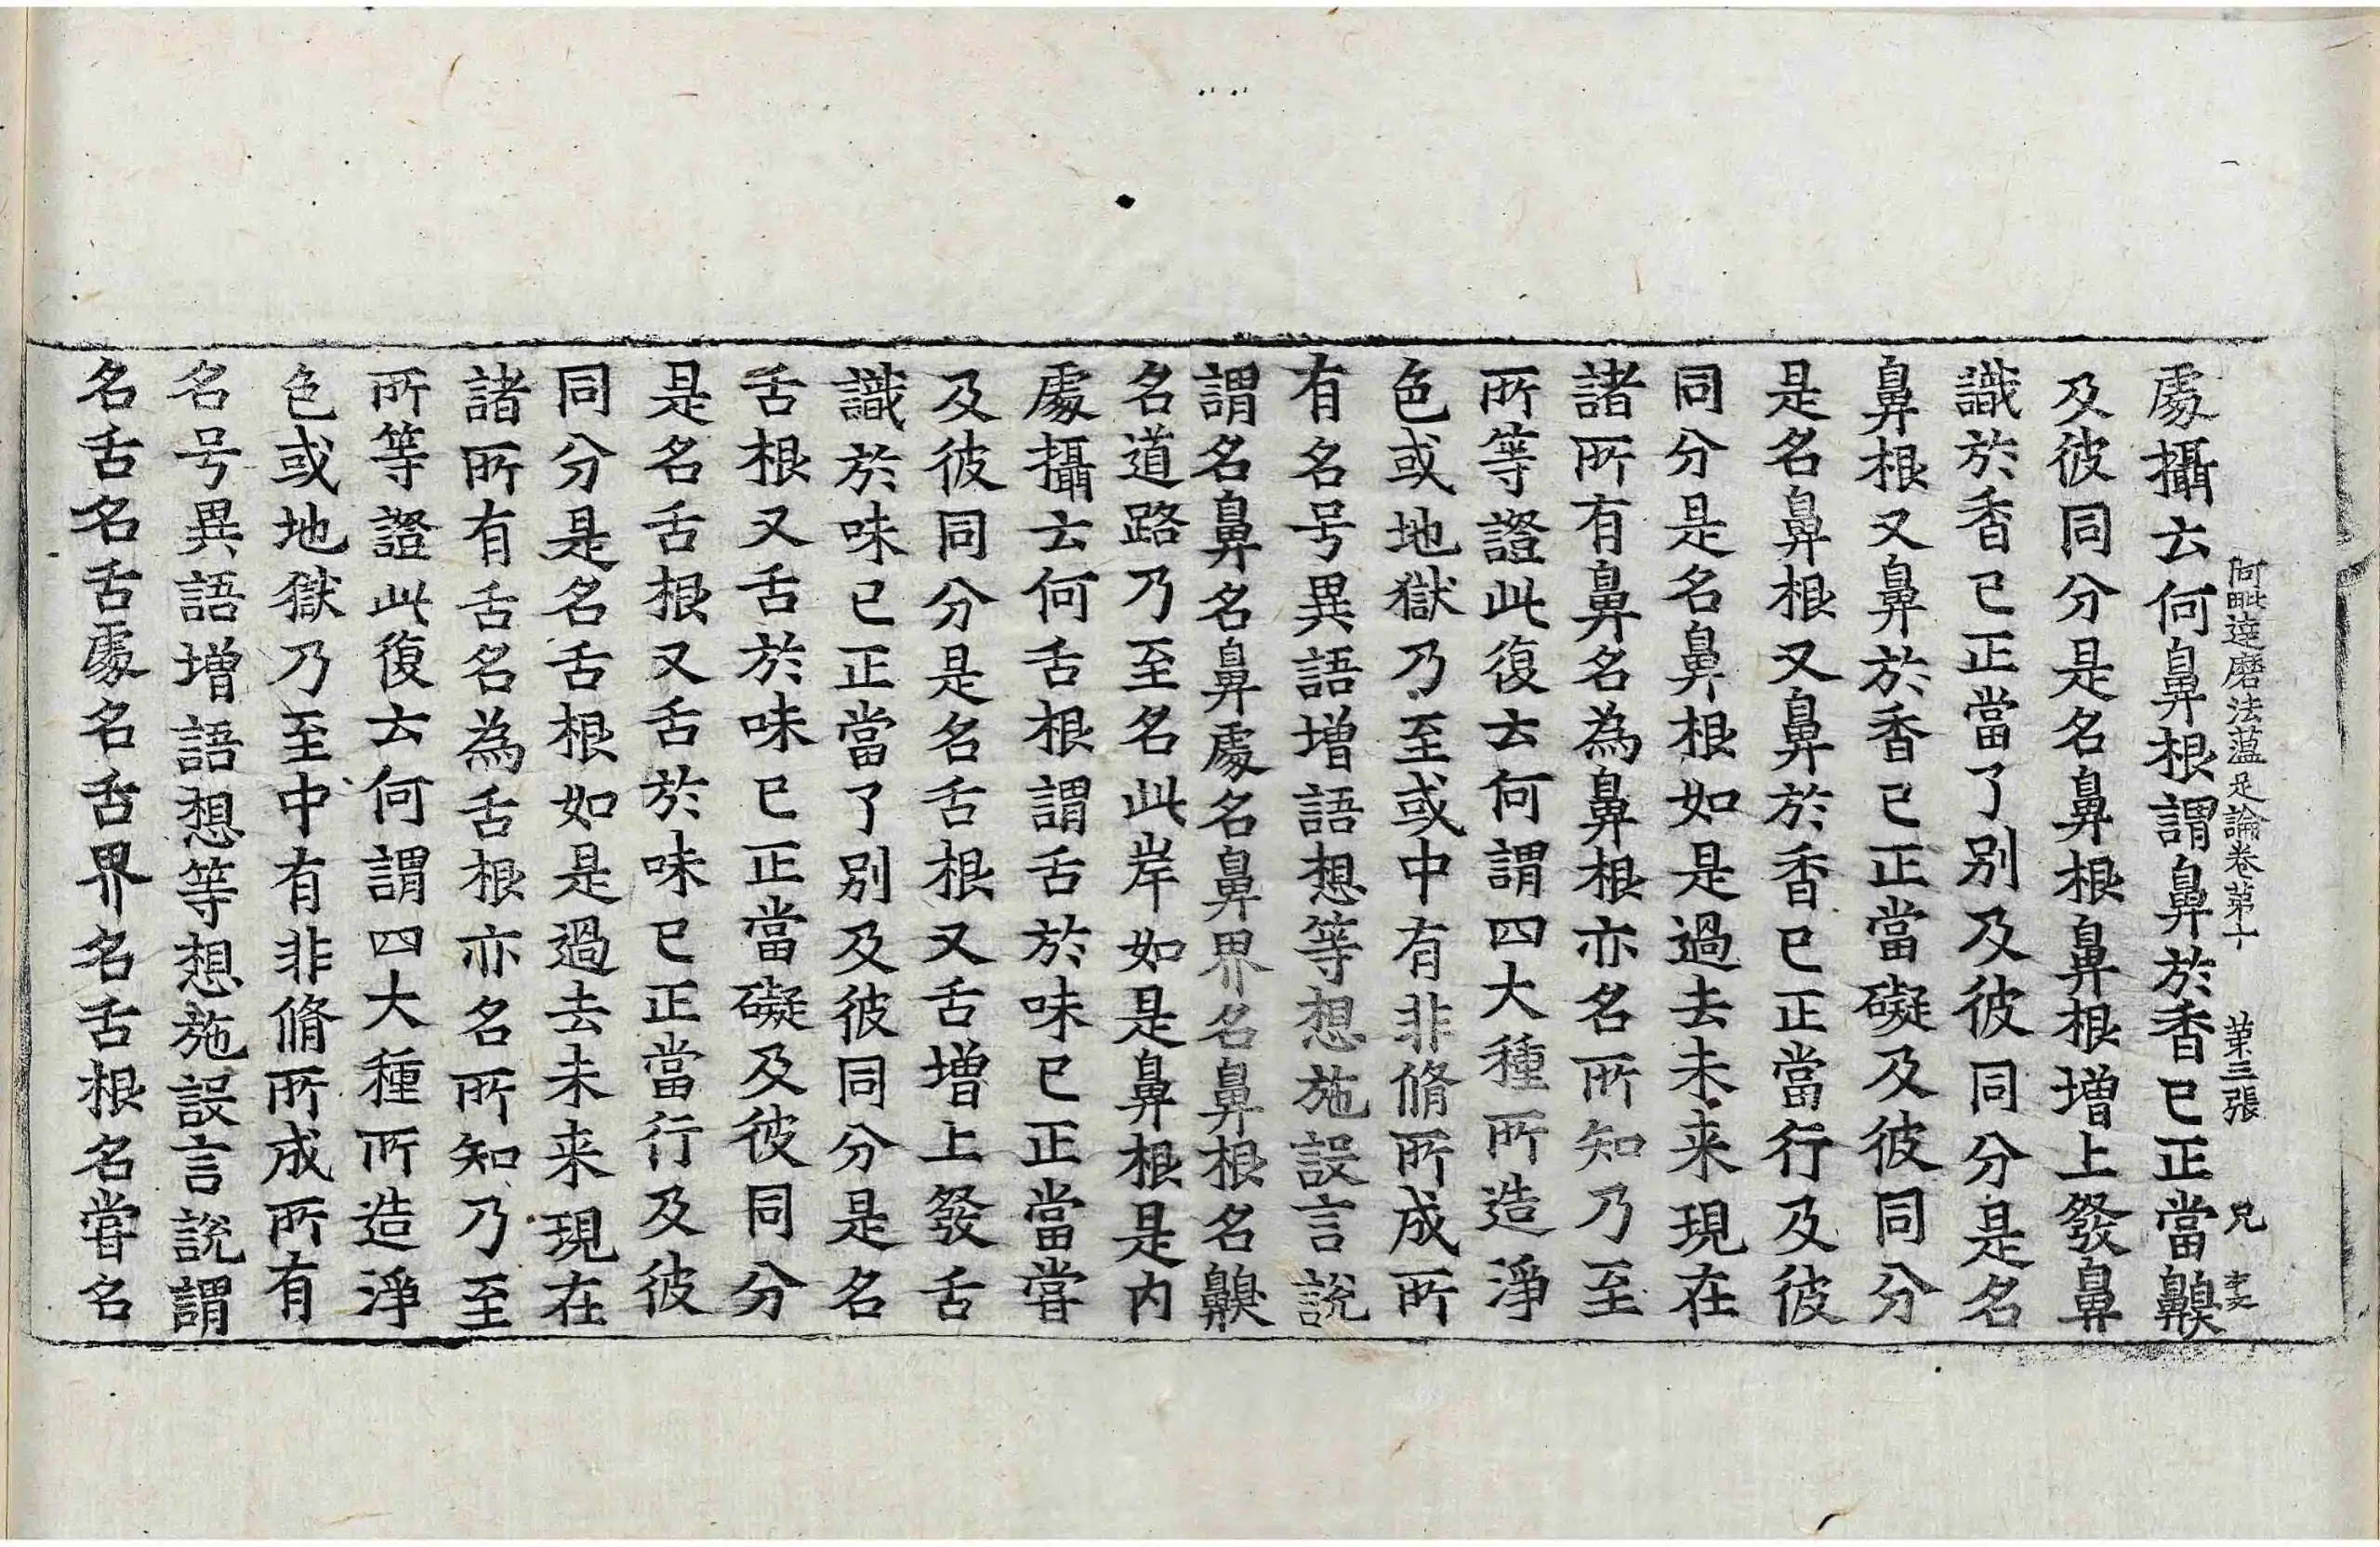 阿毗達磨法蘊足論卷第十 第三張 兄
處攝云何鼻根謂鼻於香已正當齅
及彼同分是名鼻根鼻根增上發鼻
識於香已正當了別及彼同分是名
鼻根又鼻於香已正當礙及彼同分
是名鼻根又鼻於香已正當行及彼
同分是名鼻根如是過去未来現在
諸所有鼻名為鼻根亦名所知乃至
所等證此復云何謂四大種所造淨
色或地獄乃至或中有非脩所成所
有名号異語增語想等想施設言說
謂名鼻名鼻處名鼻界名鼻根名齅
名道路乃至名此岸如是鼻根是内
處攝云何舌根謂舌於味已正當嘗
及彼同分是名舌根又舌增上發舌
識於味已正當了別及彼同分是名
舌根又舌於味已正當礙及彼同分
是名舌根又舌於味已正當行及彼
同分是名舌根如是過去未来現在
諸所有舌名為舌根亦名所知乃至
所等證此復云何謂四大種所造淨
色或地獄乃至中有非脩所成所有
名号異語增語想等想施設言說謂
名舌名舌處名舌界名舌根名嘗名